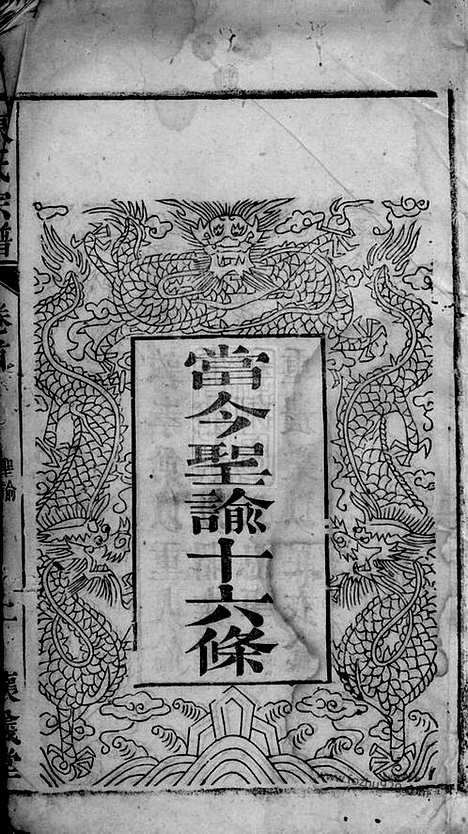 當今聖諭十六條
氏宗譜
卷首
聖諭